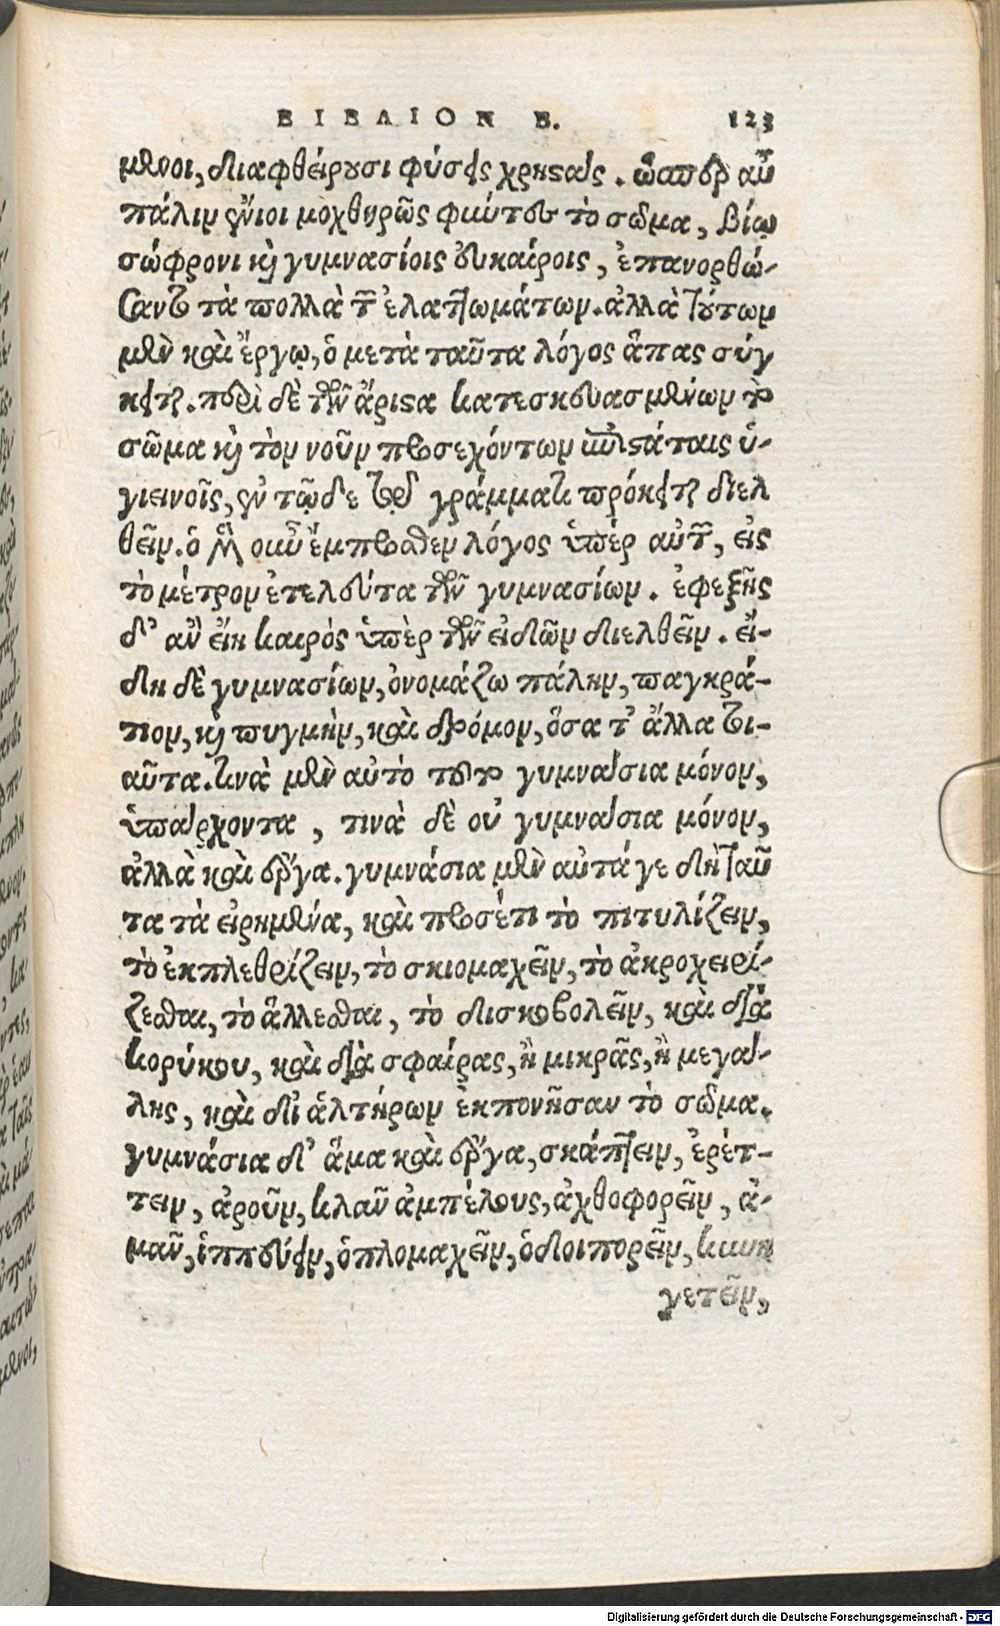 ΒΙΒΛΙΟΝ Β. 123
μενοι, διαφθείρουσι φύσεις χρηστάς. ὥσπερ αὖ
πάλιν ἔνιοι μοχθηρῶς φύντες τὸ σῶμα, βίῳ
σώφρονι καὶ γυμνασίοις εὐκαίροις, ἐπανορθώ-
σαντο τὰ πολλὰ τῶν ἐλαττωμάτων. ἀλλὰ τούτων
μὲν καὶ ἔργῳ, ὁ μετὰ ταῦτα λόγος ἅπας σύγ
κειται. περὶ δὲ τῶν ἄριστα κατεσκευασμένων τὸ
σῶμα καὶ τὸν νοῦν προσεχόντων ὑφισταταις ὑ-
γιεινοῖς, ἐν τῷδε τῷ γράμματι πρόκειται διελ
θεῖν. ὁ μὲν οὖν ἔμπροσθεν λόγος ὑπὲρ αὐτῶν, εἰς
τὸ μέτρον ἐτελεύτα τῶν γυμνασίων. ἐφεξῆς
δ' ἂν εἴη καιρὸς ὑπὲρ τῶν εἰδῶν διελθεῖν. εἴ-
δη δὲ γυμνασίων, ὀνομάζω πάλην, παγκρά-
τιον, καὶ πυγμὴν, καὶ δρόμον, ὅσα τ' ἄλλα τοι-
αῦτα. τινὰ μὲν αὐτὸ τοῦτο γυμνάσια μόνον,
ὑπάρχοντα, τινὰ δὲ οὐ γυμνάσια μόνον,
ἀλλὰ καὶ ἔργα. γυμνάσια μὲν αὐτά γε δὴ ταῦ
τα τὰ εἰρημένα, καὶ προσέτι τὸ πιτυλίζειν,
τὸ ἐκπλεθρίζειν, τὸ σκιομαχεῖν, τὸ ἀκροχειρί-
ζεσθαι, τὸ ἅλλεσθαι, τὸ δισκοβολεῖν, καὶ διὰ
κορύκου, καὶ διὰ σφαίρας, ἢ μικρᾶς, ἢ μεγά-
λης, καὶ δι' ἁλτήρων ἐκπονῆσαι τὸ σῶμα.
γυμνάσια δ' ἅμα καὶ ἔργα, σκάπτειν, ἐρέτ-
τειν, ἀροῦν, κλᾶν ἀμπέλους, ἀχθοφορεῖν, ἀ-
μᾶν, ἱππεύειν, ὁπλομαχεῖν, ὁδοιπορεῖν, κυνη
γετεῖν,
Digitalisierung gefördert durch die Deutsche Forschungsgemeinschaft - DFG